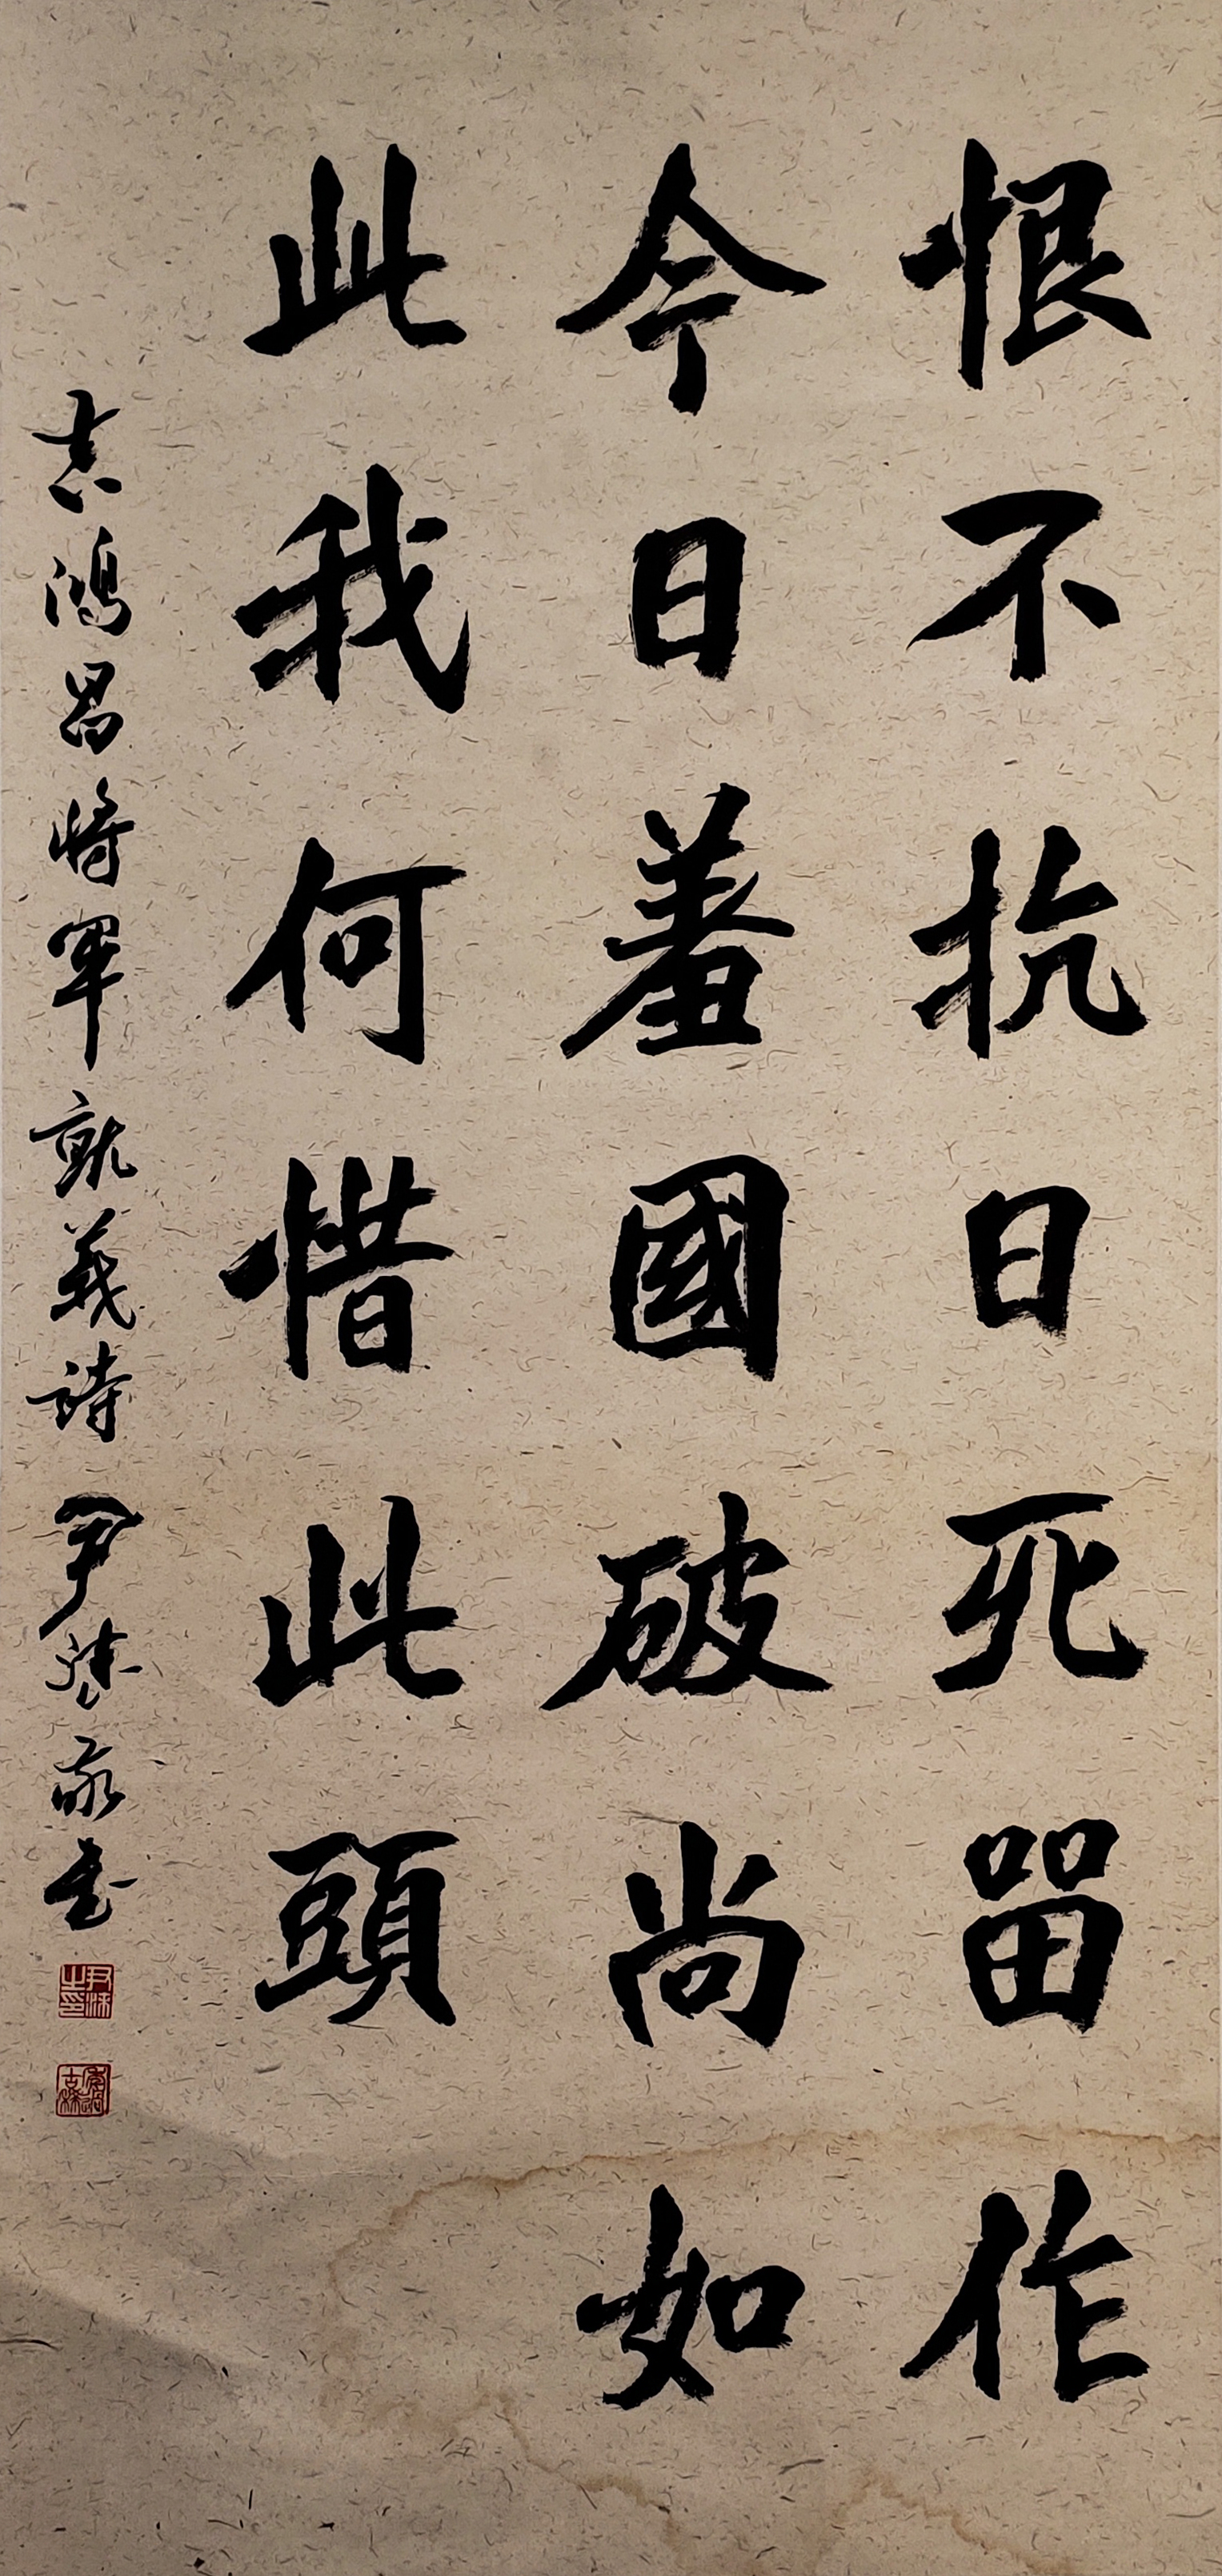 恨不抗日死留作
今日羞國破尚如
此我何惜此頭
吉鴻昌將軍就義詩 尹 敬書